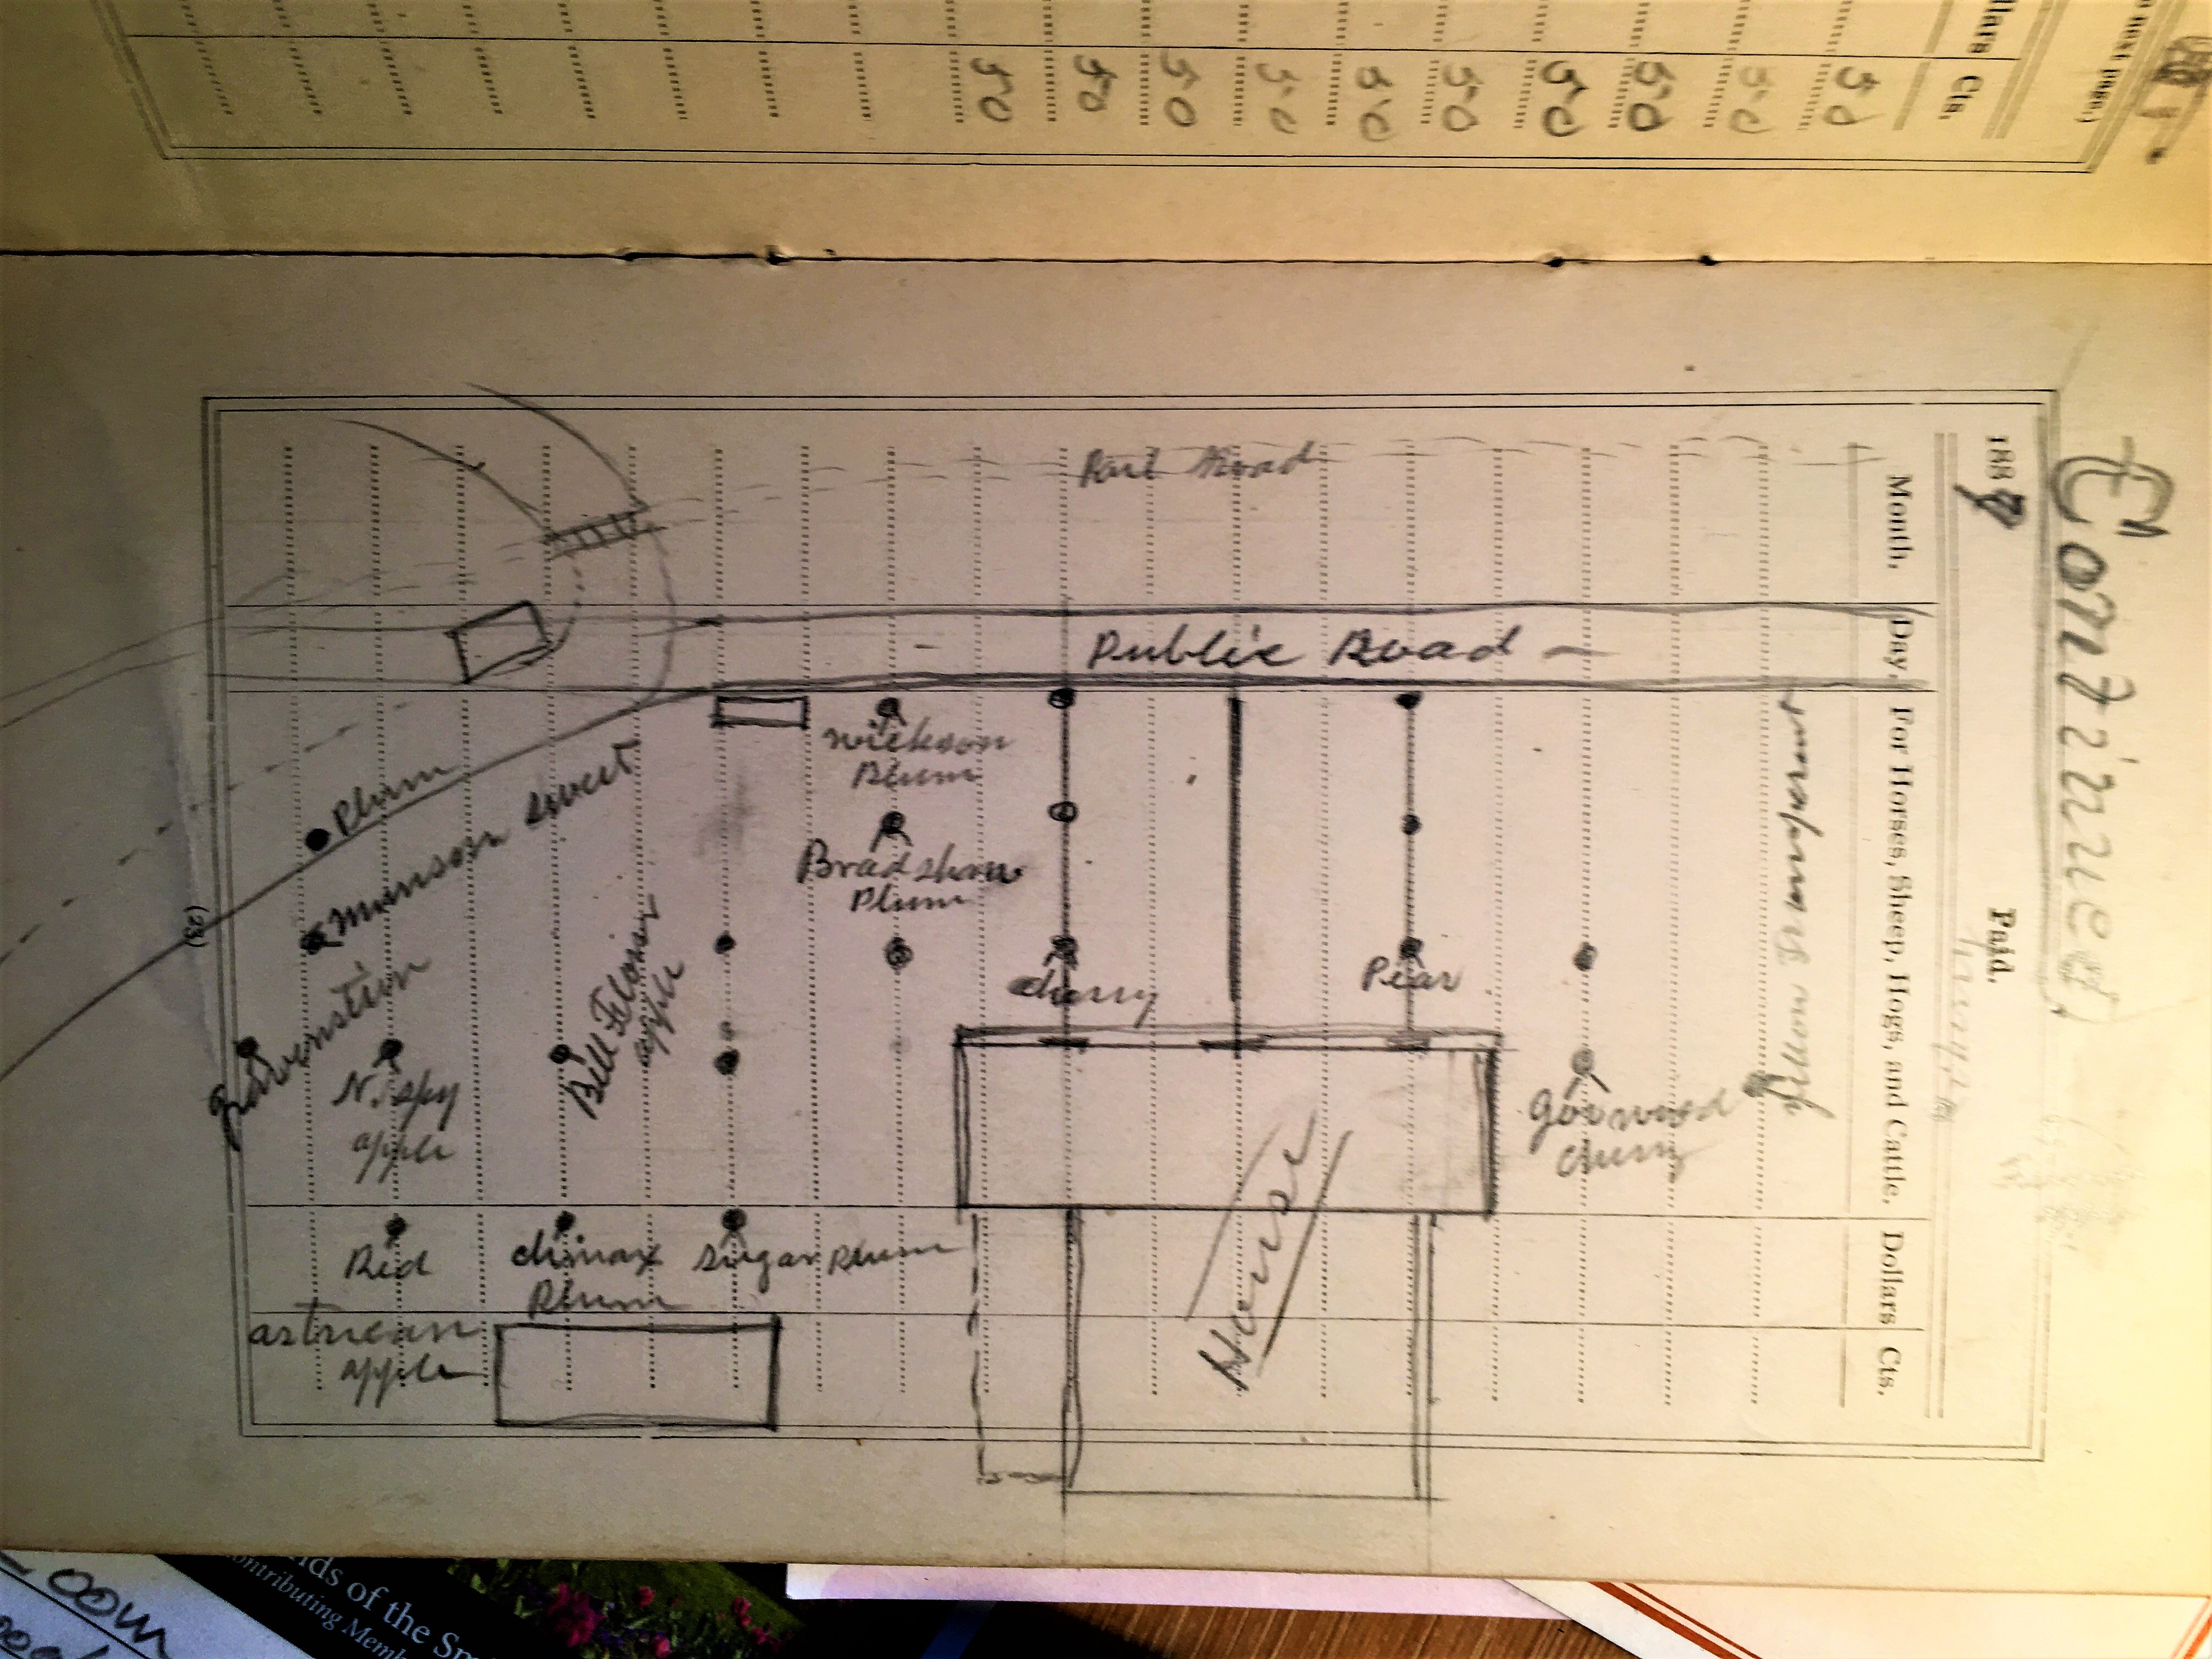 Public Road
Rail Road
Wickson
Plum
Bradshaw
Plum
Plum
Munson Sweet
Gravenstein
N. Spy
apple
Bell Flower
apple
Cherry
Pear
Govwood
Cherry
Yellow Transparent
House
Red
astrican
apple
Climax
Plum
Sugar Plum
Continued
1887
Paid.
Month.
Day.
For Horses, Sheep, Hogs, and Cattle.
Dollars
Cts.
(23)
next page.)
llars
Cts.
50
50
50
50
50
50
50
50
50
50
nds of the Sm
ontributing Memb
oom